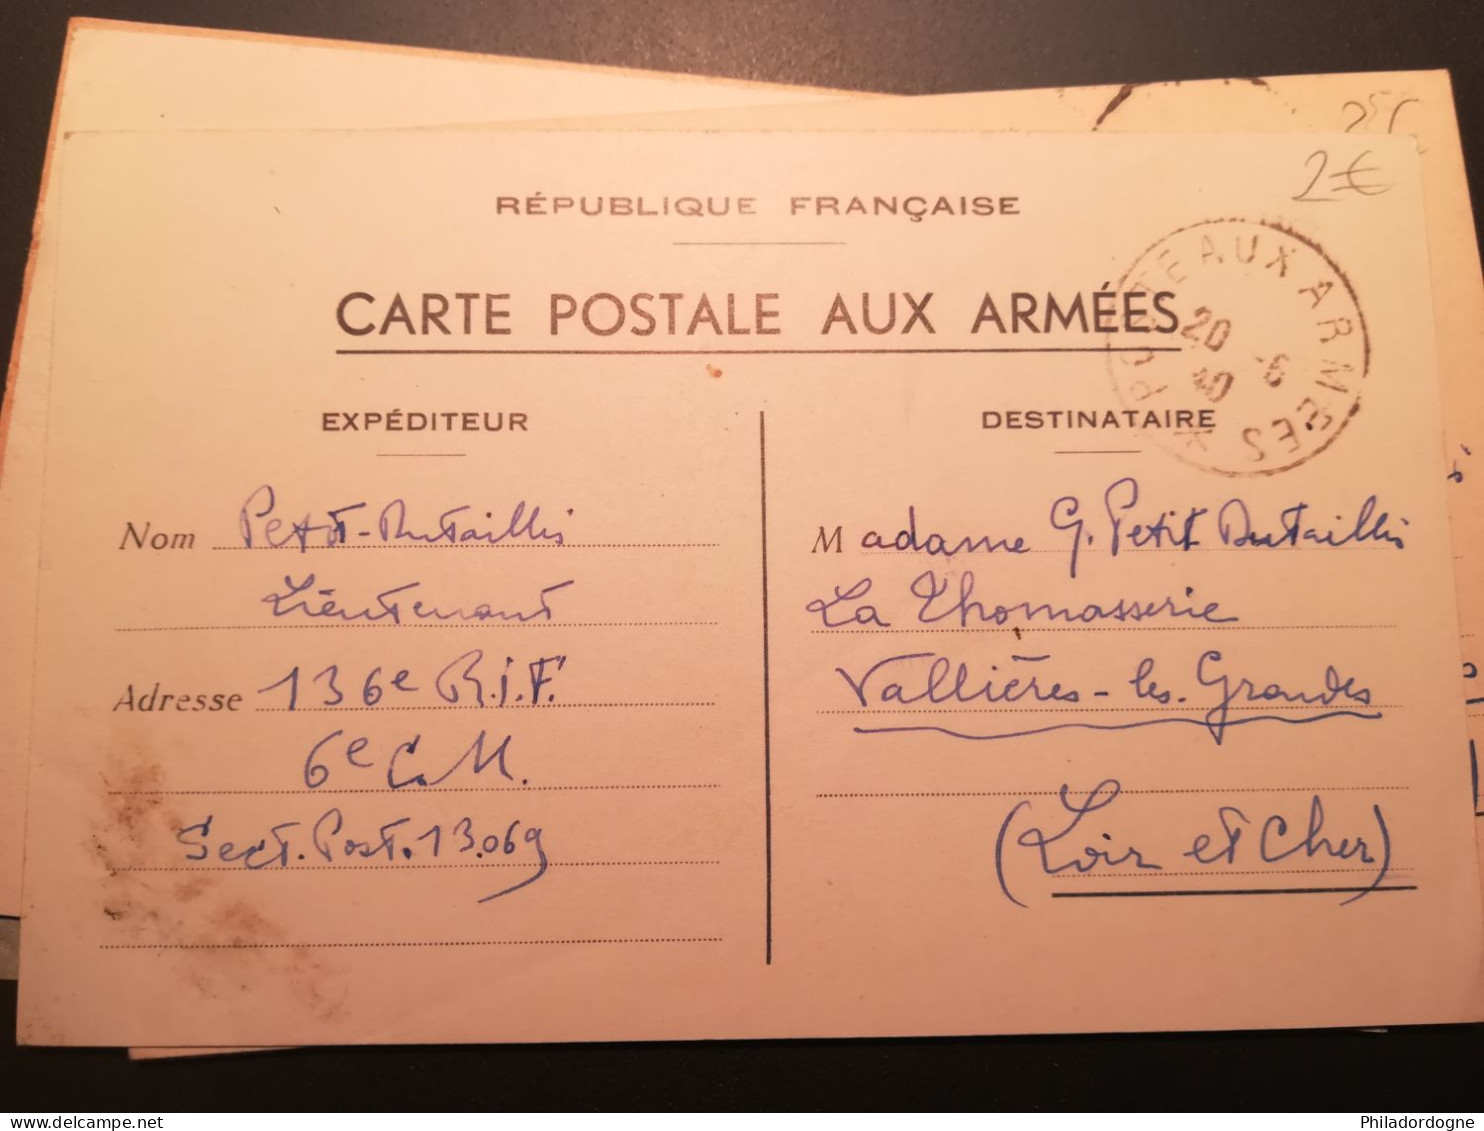 2€
RÉPUBLIQUE FRANÇAISE
CARTE POSTALE AUX ARMÉES
POSTE AUX ARMEES *
20 -6
40
EXPÉDITEUR
Nom Petit-Dutaillis
Lieutenant
Adresse 136e R.I.F.
6e C.M.
Sect. Post. 13.069
DESTINATAIRE
Madame G. Petit Dutaillis
La Thomasserie
Vallières-les-Grandes
(Loir et Cher)
Philadordogne